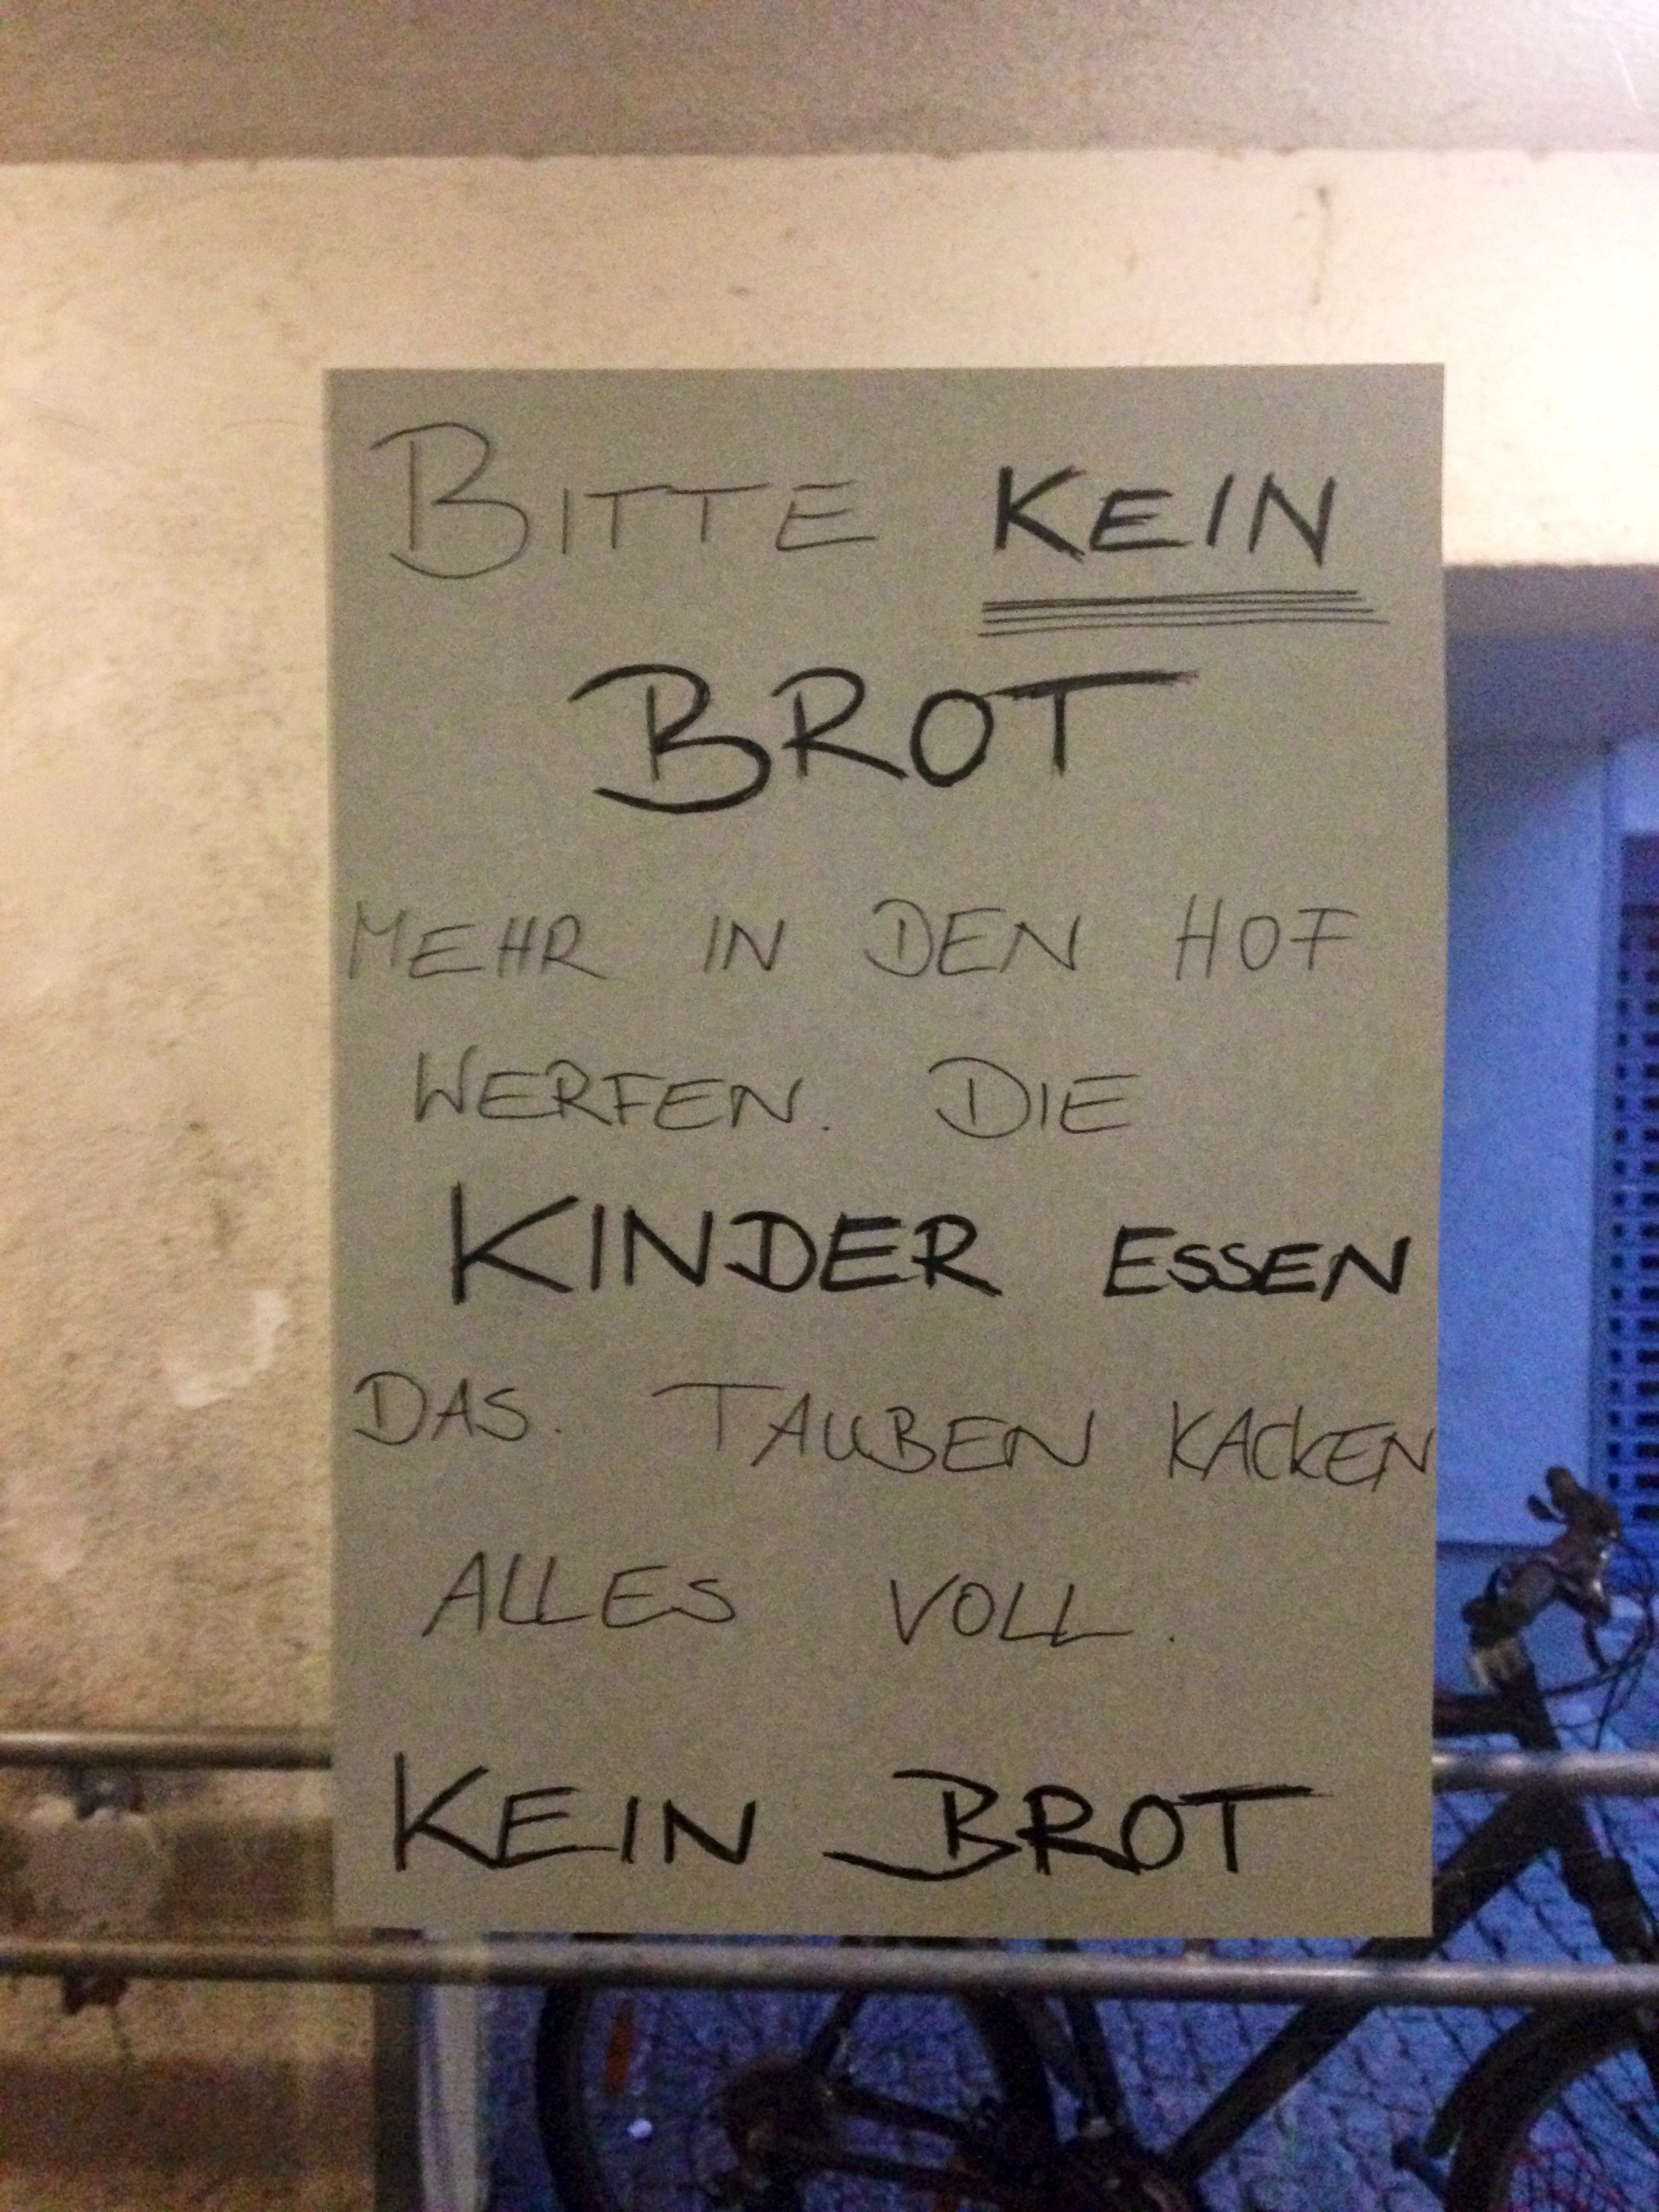 BITTE KEIN
BROT
MEHR IN DEN HOF
WERFEN. DIE
KINDER ESSEN
DAS. TAUBEN KACKEN
ALLES VOLL.
KEIN BROT